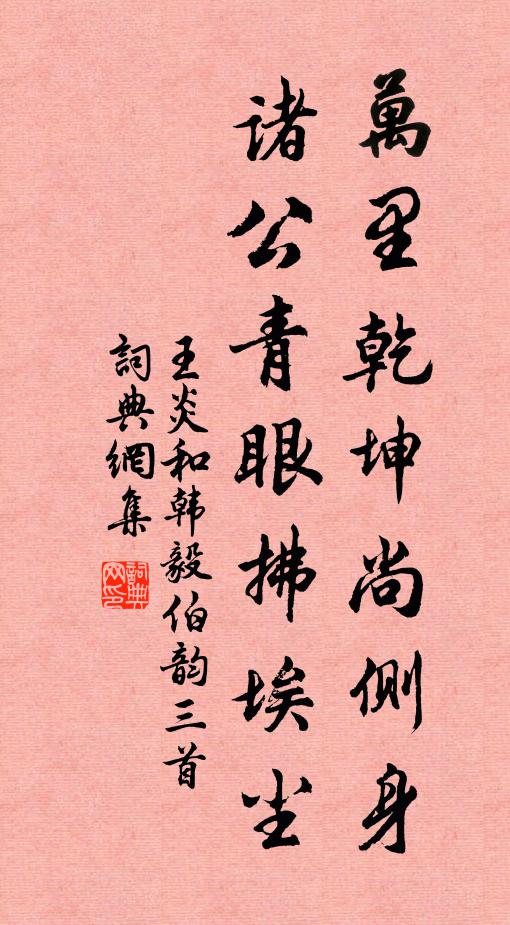 萬里乾坤尚側身
诸公青眼拂埃尘
王炎和韩毅伯韵三首
詞典網集
詞典网印